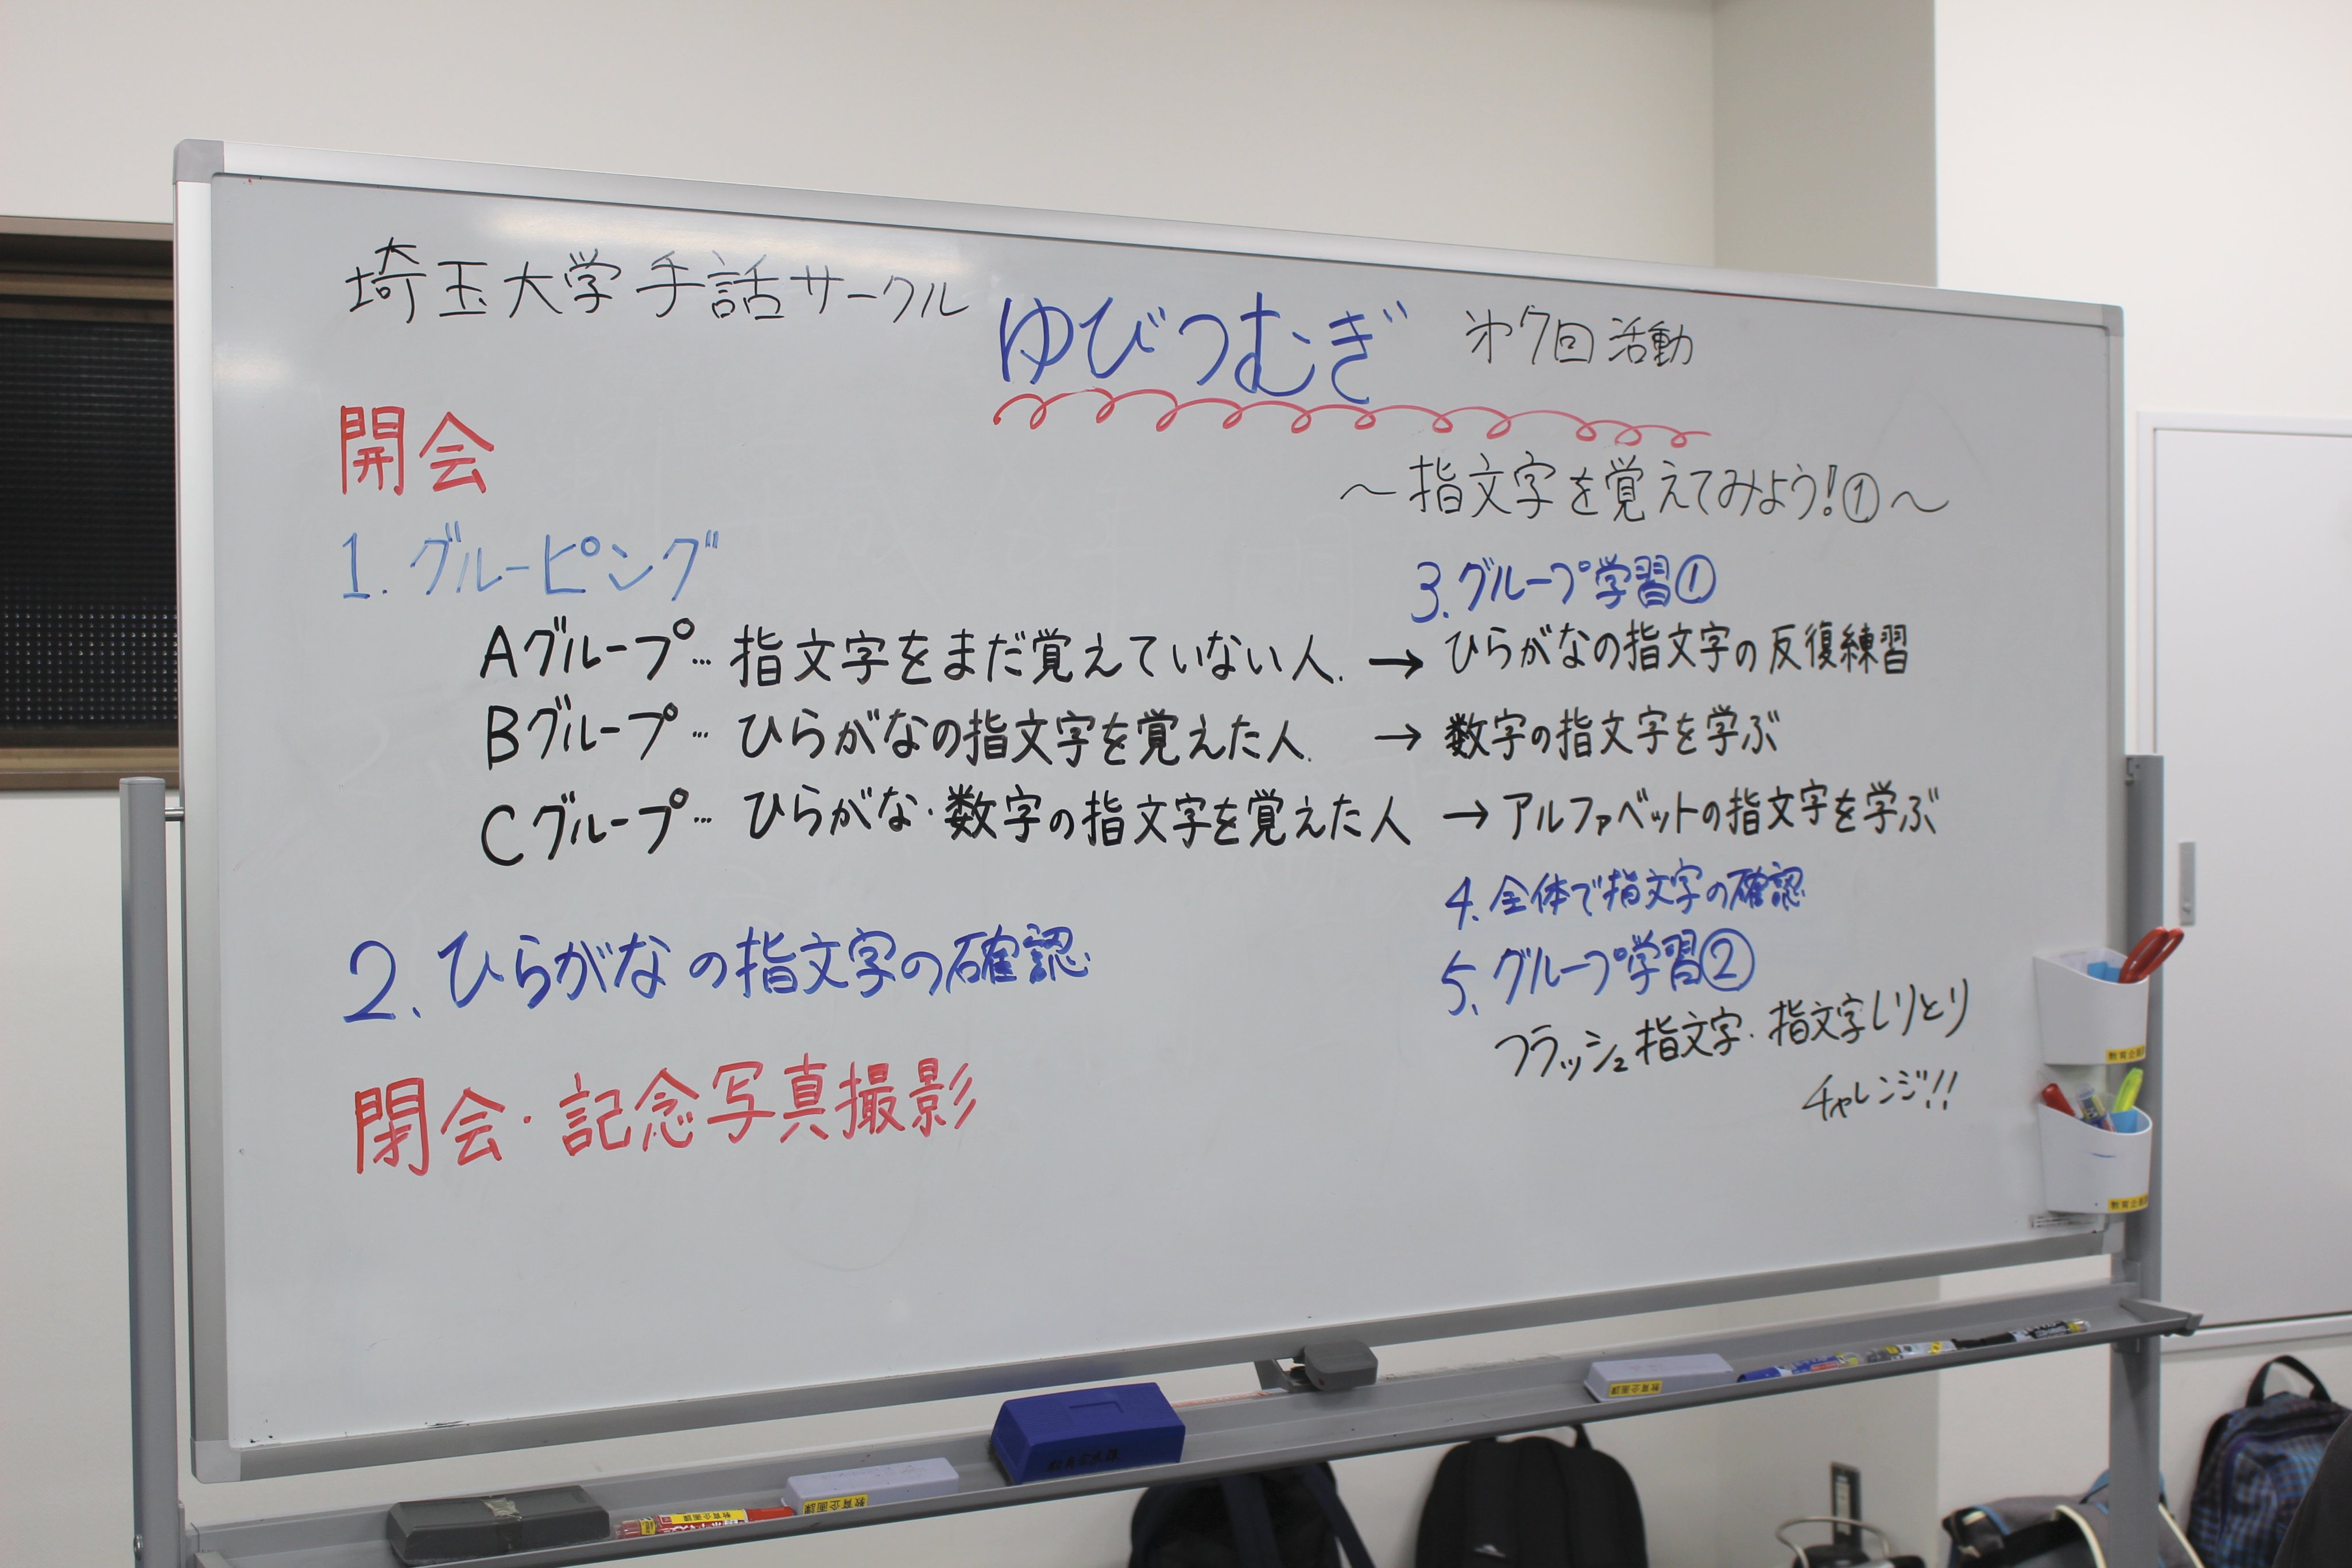 埼玉大学手話サークル ゆびつむぎ 第7回活動
～指文字を覚えてみよう!①～
開会
1. グルーピング
Aグループ… 指文字をまだ覚えていない人.
Bグループ… ひらがなの指文字を覚えた人.
Cグループ… ひらがな・数字の指文字を覚えた人
2. ひらがなの指文字の確認
3. グループ学習①
→ ひらがなの指文字の反復練習
→ 数字の指文字を学ぶ
→ アルファベットの指文字を学ぶ
4. 全体で指文字の確認
5. グループ学習②
フラッシュ指文字・指文字しりとり
チャレンジ!!
閉会・記念写真撮影
教育企画課
教育企画課